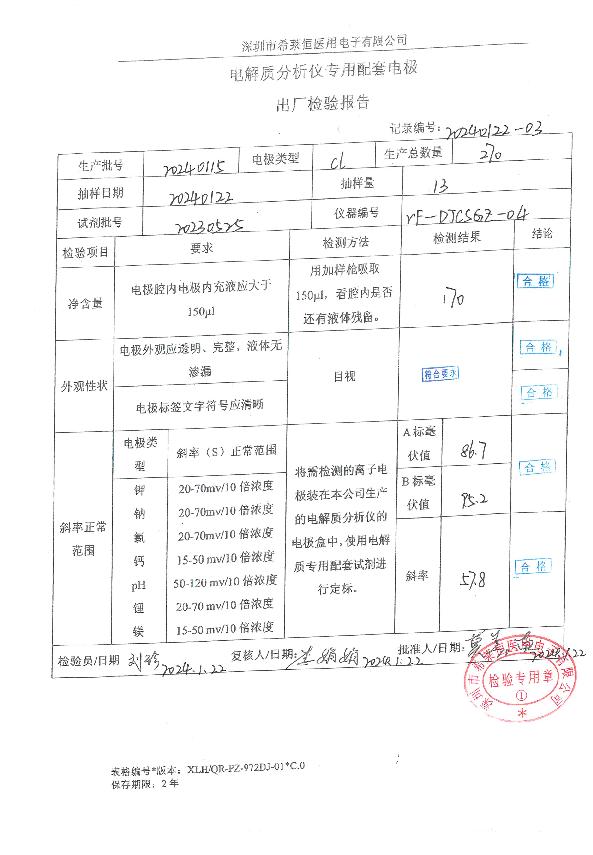 深圳市希莱恒医用电子有限公司
电解质分析仪专用配套电极
出厂检验报告
记录编号：20240122-03
生产批号 20240115 电极类型 cl 生产总数量 270
抽样日期 20240122 抽样量 13
试剂批号 20230525 仪器编号 YF-DJCSGZ-04
检验项目 要求 检测方法 检测结果 结论
净含量
电极腔内电极内充液应大于
150μl
用加样枪吸取
150μl，看腔内是否
还有液体残留。
170
合格
外观性状
电极外观应透明、完整，液体无
渗漏
电极标签文字符号应清晰
目视
符合要求
合格
合格
斜率正常
范围
电极类
型
斜率（S）正常范围
钾 20-70mv/10 倍浓度
钠 20-70mv/10 倍浓度
氯 20-70mv/10 倍浓度
钙 15-50 mv/10 倍浓度
pH 50-120 mv/10 倍浓度
锂 20-70 mv/10 倍浓度
镁 15-50 mv/10 倍浓度
将需检测的离子电
极装在本公司生产
的电解质分析仪的
电极盒中，使用电解
质专用配套试剂进
行定标。
A 标毫
伏值
86.7
B 标毫
伏值
95.2
合格
斜率
57.8
合格
检验员/日期 2024.1.22 复核人/日期： 2024.1.22 批准人/日期： 2024.1.22
深圳市希莱恒医用电子有限公司
检验专用章
①
表格编号*版本：XLH/QR-PZ-972DJ-01*C.0
保存期限：2 年